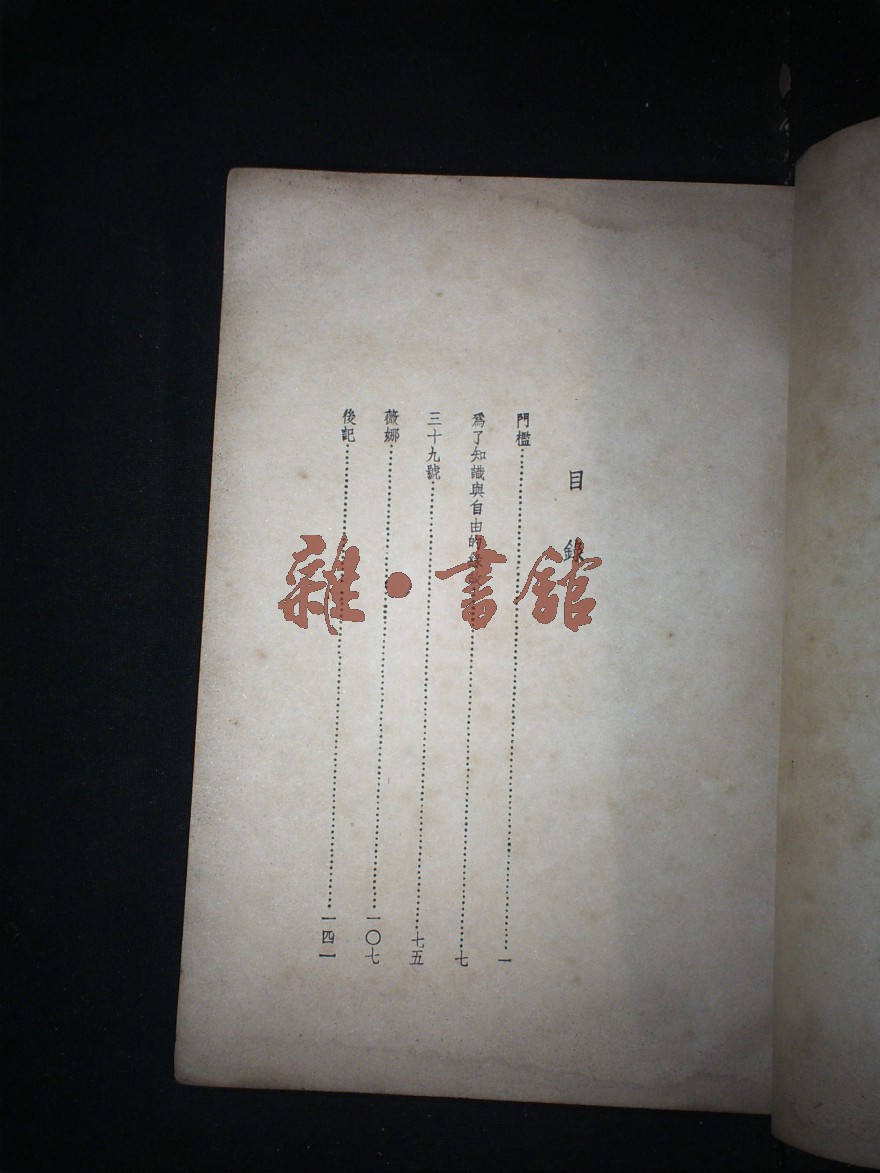 目錄
門檻……一
爲了知識與自由的緣故……七
三十九號……七五
薇娜……一〇七
後記……一四一
雜•書館